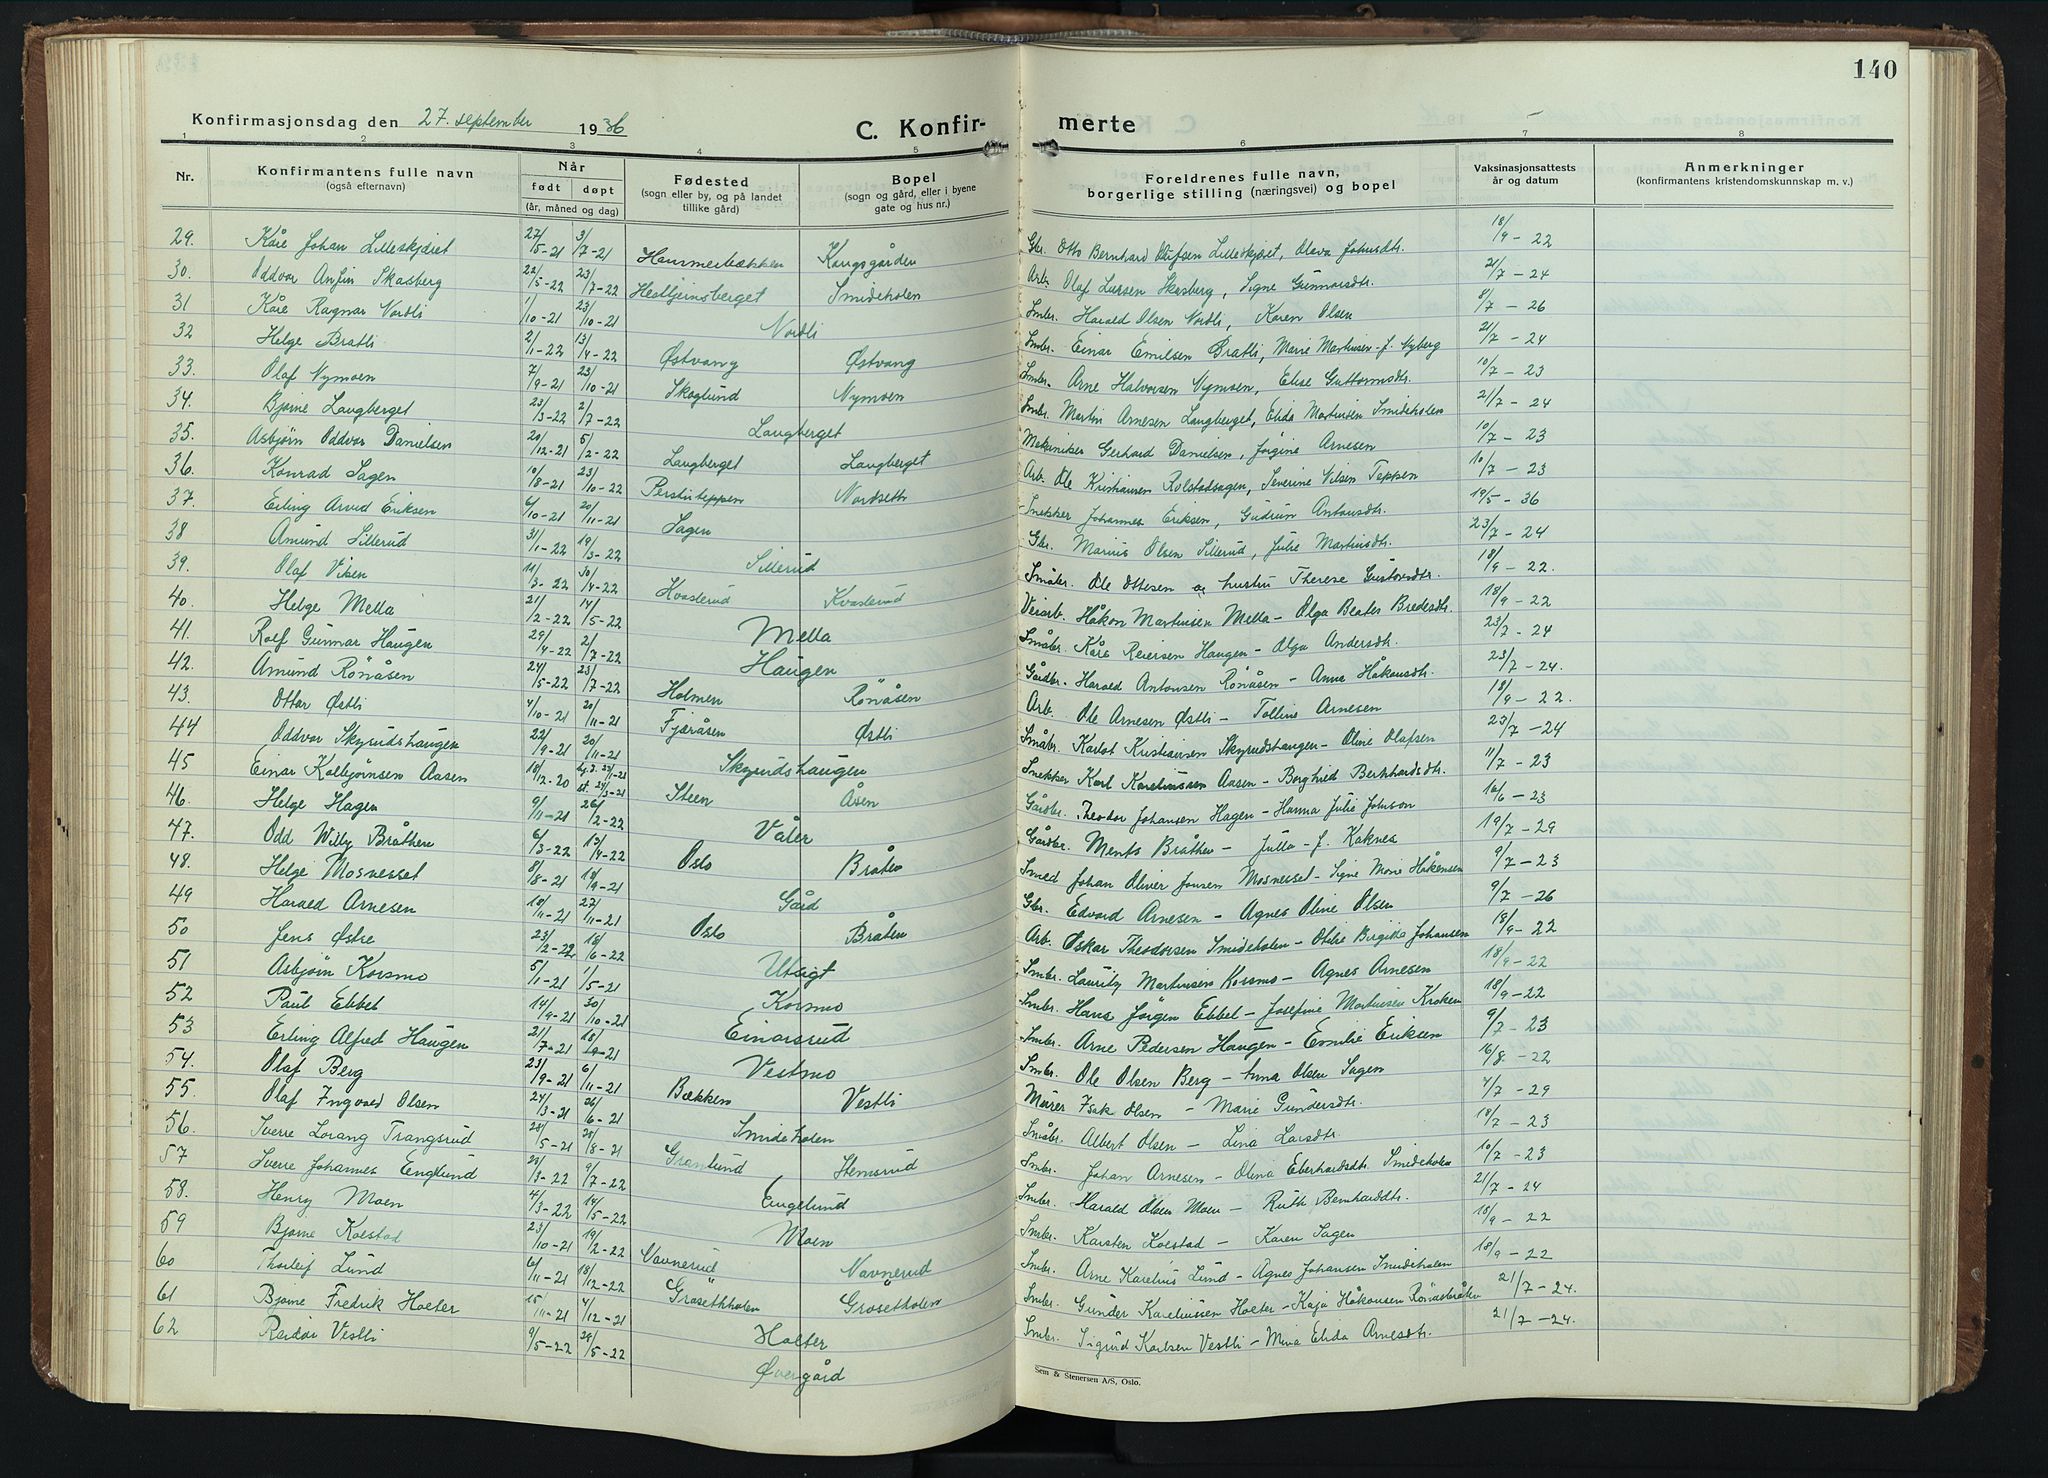 140
Konfirmasjonsdag den 27. september 1936
C. Konfir- merte
1 2 3 4 5 6 7 8
Nr.
Konfirmantens fulle navn (også efternavn)
Når født døpt (år, måned og dag)
Fødested (sogn eller by, og på landet tillike gård)
Bopel (sogn og gård, eller i byene gate og hus nr.)
Foreldrenes fulle navn, borgerlige stilling (næringsvei) og bopel
Vaksinasjonsattests år og datum
Anmerkninger (konfirmantens kristendomskunnskap m. v.)
29. Kåre Johan Lilleskjæret 27/5-21 3/7-21 Hammerbækken Kongsgården Gbr. Otto Bernhard Olufsen Lilleskjæret, Olava Johnsdtr. 18/9-22
30. Oddvar Anfin Skasberg 22/5-22 23/7-22 Heibjørnsberget Smideholen Arb. Olaf Larsen Skasberg, Signe Gunnarsdtr. 21/7-24
31 Kåre Ragnar Nordli 1/10-21 23/10-21 Nordli Smbr. Harald Olsen Nordli, Karen Olsen 8/7-26
32 Helge Bratli 2/1-22 13/4-22 Østvang Østvang Smbr. Einar Emilsen Bratli, Marie Martinsen f. Nyberg 21/7-24
33. Olaf Nymoen 7/9-21 23/10-21 Skoglund Nymoen Smbr. Arne Halvorsen Nymoen, Elise Guttormsdtr. 10/7-23
34. Bjarne Langberget 23/3-22 2/7-22 Langberget Smbr. Martin Arnesen Langberget, Elida Martinsen Smideholen 21/7-24
35. Asbjørn Oddvar Danielsen 20/12-21 5/2-22 Langberget Langberget Mekaniker Gerhard Danielsen, Jørgine Arnesen 10/7-23
36. Konrad Sagen 10/8-21 23/10-22 Perstuteppen Nordseth Arb. Ole Kristiansen Rolstadsagen, Severine Nilsen Teppen 10/7-23
37. Erling Arvid Eriksen 6/10-21 20/11-21 Sagen Snekker Johannes Eriksen, Gudrun Antonsdtr. 19/5-36
38 Amund Sillerud 31/1-22 19/3-22 Sillerud Gbr. Marius Olsen Sillerud, Julie Martinsdtr. 23/7-24
39. Olaf Viken 11/3-22 30/4-22 Kvaslerud Kvaslerud Småbr. Ole Ottesen og hustru Therese Gustavsdtr. 18/9-22.
40. Helge Mella 21/2-22 14/5-22 Mella Veiarb. Håkon Martinsen Mella - Olga Beate Bredesdtr. 18/9-22
41. Rolf Gunnar Haugen 29/4-22 2/7-22 Haugen Småbr. Kåre Reiersen Haugen - Olga Andersdtr. 23/7-24
42. Amund Rönåsen 24/5-22 23/7-22 Holmen Rönåsen Gårdbr. Harald Antonsen Rönåsen - Anna Håkonsdtr. 23/7-24.
43. Ottar Østli 4/10-21 20/11-21 Fjæråsen Østli Arb. Ole Arnesen Østli - Tolline Arnesen 18/9-22.
44 Oddvar Skyrudshaugen 22/9-21 20/11-21 Skyrudshaugen Småbr. Karlot Kristiansen Skyrudshaugen - Oline Olafsen 23/7-24
45 Einar Kolbjørnsen Aasen 18/12-20 Steen Åsen Snekker Karl Karelinssen Aasen - Borghild Bernhardsdtr. 11/7-23
46. Helge Hagen 9/11-21 26/2-22 Våler Gårdbr. Theodor Johansen Hagen - Hanna Julie Johnson 16/6-23
47. Odd Willy Bråthen 6/3-22 13/4-22 Oslo Bråten Gårdbr. Ments Bråthen - Julla - f. Kaknes 19/7-29
48. Helge Mosnesset 8/8-21 18/9-21 Gård Smed Johan Oliver Jonsen Mosnesset - Signe Marie Håkensen 9/7-23
49 Harald Arnesen 18/11-21 27/11-21 Oslo Bråten Gbr. Edvard Arnesen - Agnes Oline Olsen 9/7-26
50 Jens Østre 23/2-22 18/6-22 Utsigt Arb. Oskar Theodorsen Smideholen - Otelie Birgitte Johansen 18/9-22
51 Asbjørn Korsmo 5/1-21 1/5-21 Korsmo Smbr. Lauritz Martinsen Korsmo - Agnes Arnesen 18/9-22
52 Paul Ebbel 14/9-21 30/10-21 Einarsrud Smbr. Hans Jörgen Ebbel - Josefine Martinsen Kroken 18/9-22
53 Erling Alfred Haugen 21/7-21 18/9-21 Vestmo Smbr. Arne Pedersen Haugen - Emilie Eriksen 9/7-23
54. Olaf Berg 23/9-21 6/11-21 Bækken Vestli Smbr. Ole Olsen Berg - Anna Olsen Sagen 16/8-22
55. Olaf Ingvald Olsen 24/3-21 26/6-21 Smideholen Murer Isak Olsen - Marie Gundersdtr. 4/7-29
56. Sverre Lorang Trangsrud 28/5-21 28/8-21 Granlund Stemsrud Småbr. Albert Olsen - Lina Larsdtr. 18/7-23
57 Sverre Johannes Englund 23/3-22 9/7-22 Engelund Smbr. Johan Arnesen - Olina Eberhardsdtr. Smideholen 10/7-23
58. Henry Moen 4/3-22 14/5-22 Moen Smbr. Harald Olsen Moen - Ruth Bernhardsdtr. 21/7-24
59 Bjarne Kolstad 23/10-21 19/2-22 Navnerud Navnerud Smbr. Karsten Kolstad - Karen Sagen 18/9-22
60 Thorleif Lund 6/11-21 18/12-22 Grosethholen Grosetholen Smbr. Arne Karelius Lund - Agnes Johansen Smideholen 18/9-22
61 Bjarne Fredrik Holter 15/11-21 4/12-21 Holter Smbr. Gunder Kareliussen Holter - Kaja Håkonsen Rönåsbråten 21/7-24.
62 Reidar Vestli 9/5-22 29/5-22 Øvergård Smbr. Sigurd Karlsen Vestli - Mina Elida Arnesdtr. 21/7-24.
Sem & Stenersen A/S, Oslo.